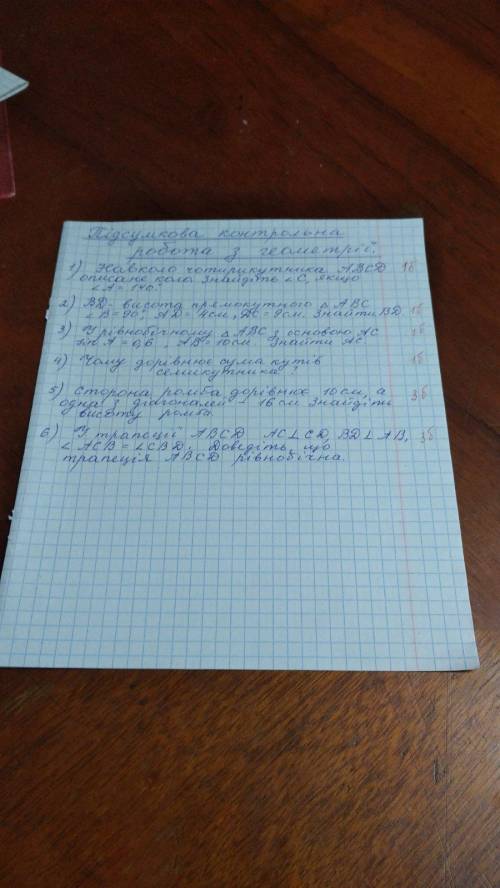 Підсумкова контрольна
робота з геометрії.
1) Навколо чотирикутника ABCD 1б
описане коло. Знайдіть ∠C, якщо
∠A = 140°.
2) BD - висота прямокутного △ ABC
∠B = 90°, AD = 4см, DC = 9см. Знайти BD. 1б
3) У рівнобічному △ ABC з основою AC 1б
sin A = 0,6, AB = 10см. Знайти AC.
4) Чому дорівнює сума кутів 1б
семикутника?
5) Сторона ромба дорівнює 10см, а 3б
одна з діагоналей - 16 см. Знайдіть
висоту ромба.
6) У трапеції ABCD AC⊥CD, BD⊥AB, 3б
∠ ACB = ∠CBD. Доведіть, що
трапеція ABCD рівнобічна.